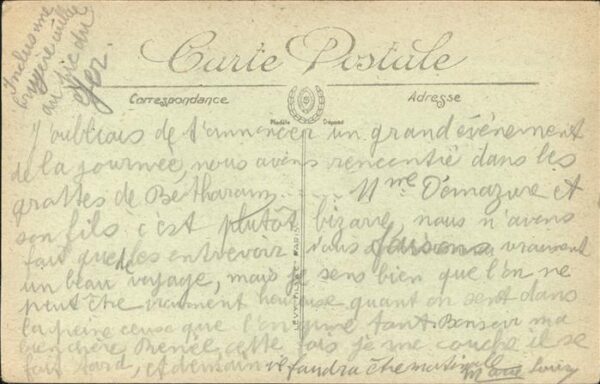 Inclus une
bruyère cueillie
au pic du
Ger.
Carte Postale
Correspondance
Adresse
Modèle Déposé
J'oubliais de t'annoncer un grand événement
de la journée, nous avons rencontré dans les
grottes de Bétharam Mme Demazure et
son fils c'est plutôt bizarre, nous n'avons
fait que les entrevoir nous faisons vraiment
un beau voyage, mais je sens bien que l'on ne
peut être vraiment heureuse quant on sent dans
la peine ceuse que l'on aime tant. Bonsoir ma
bien chère Renée cette fois je me couche il se
fait tard, et demain il faudra être matinal